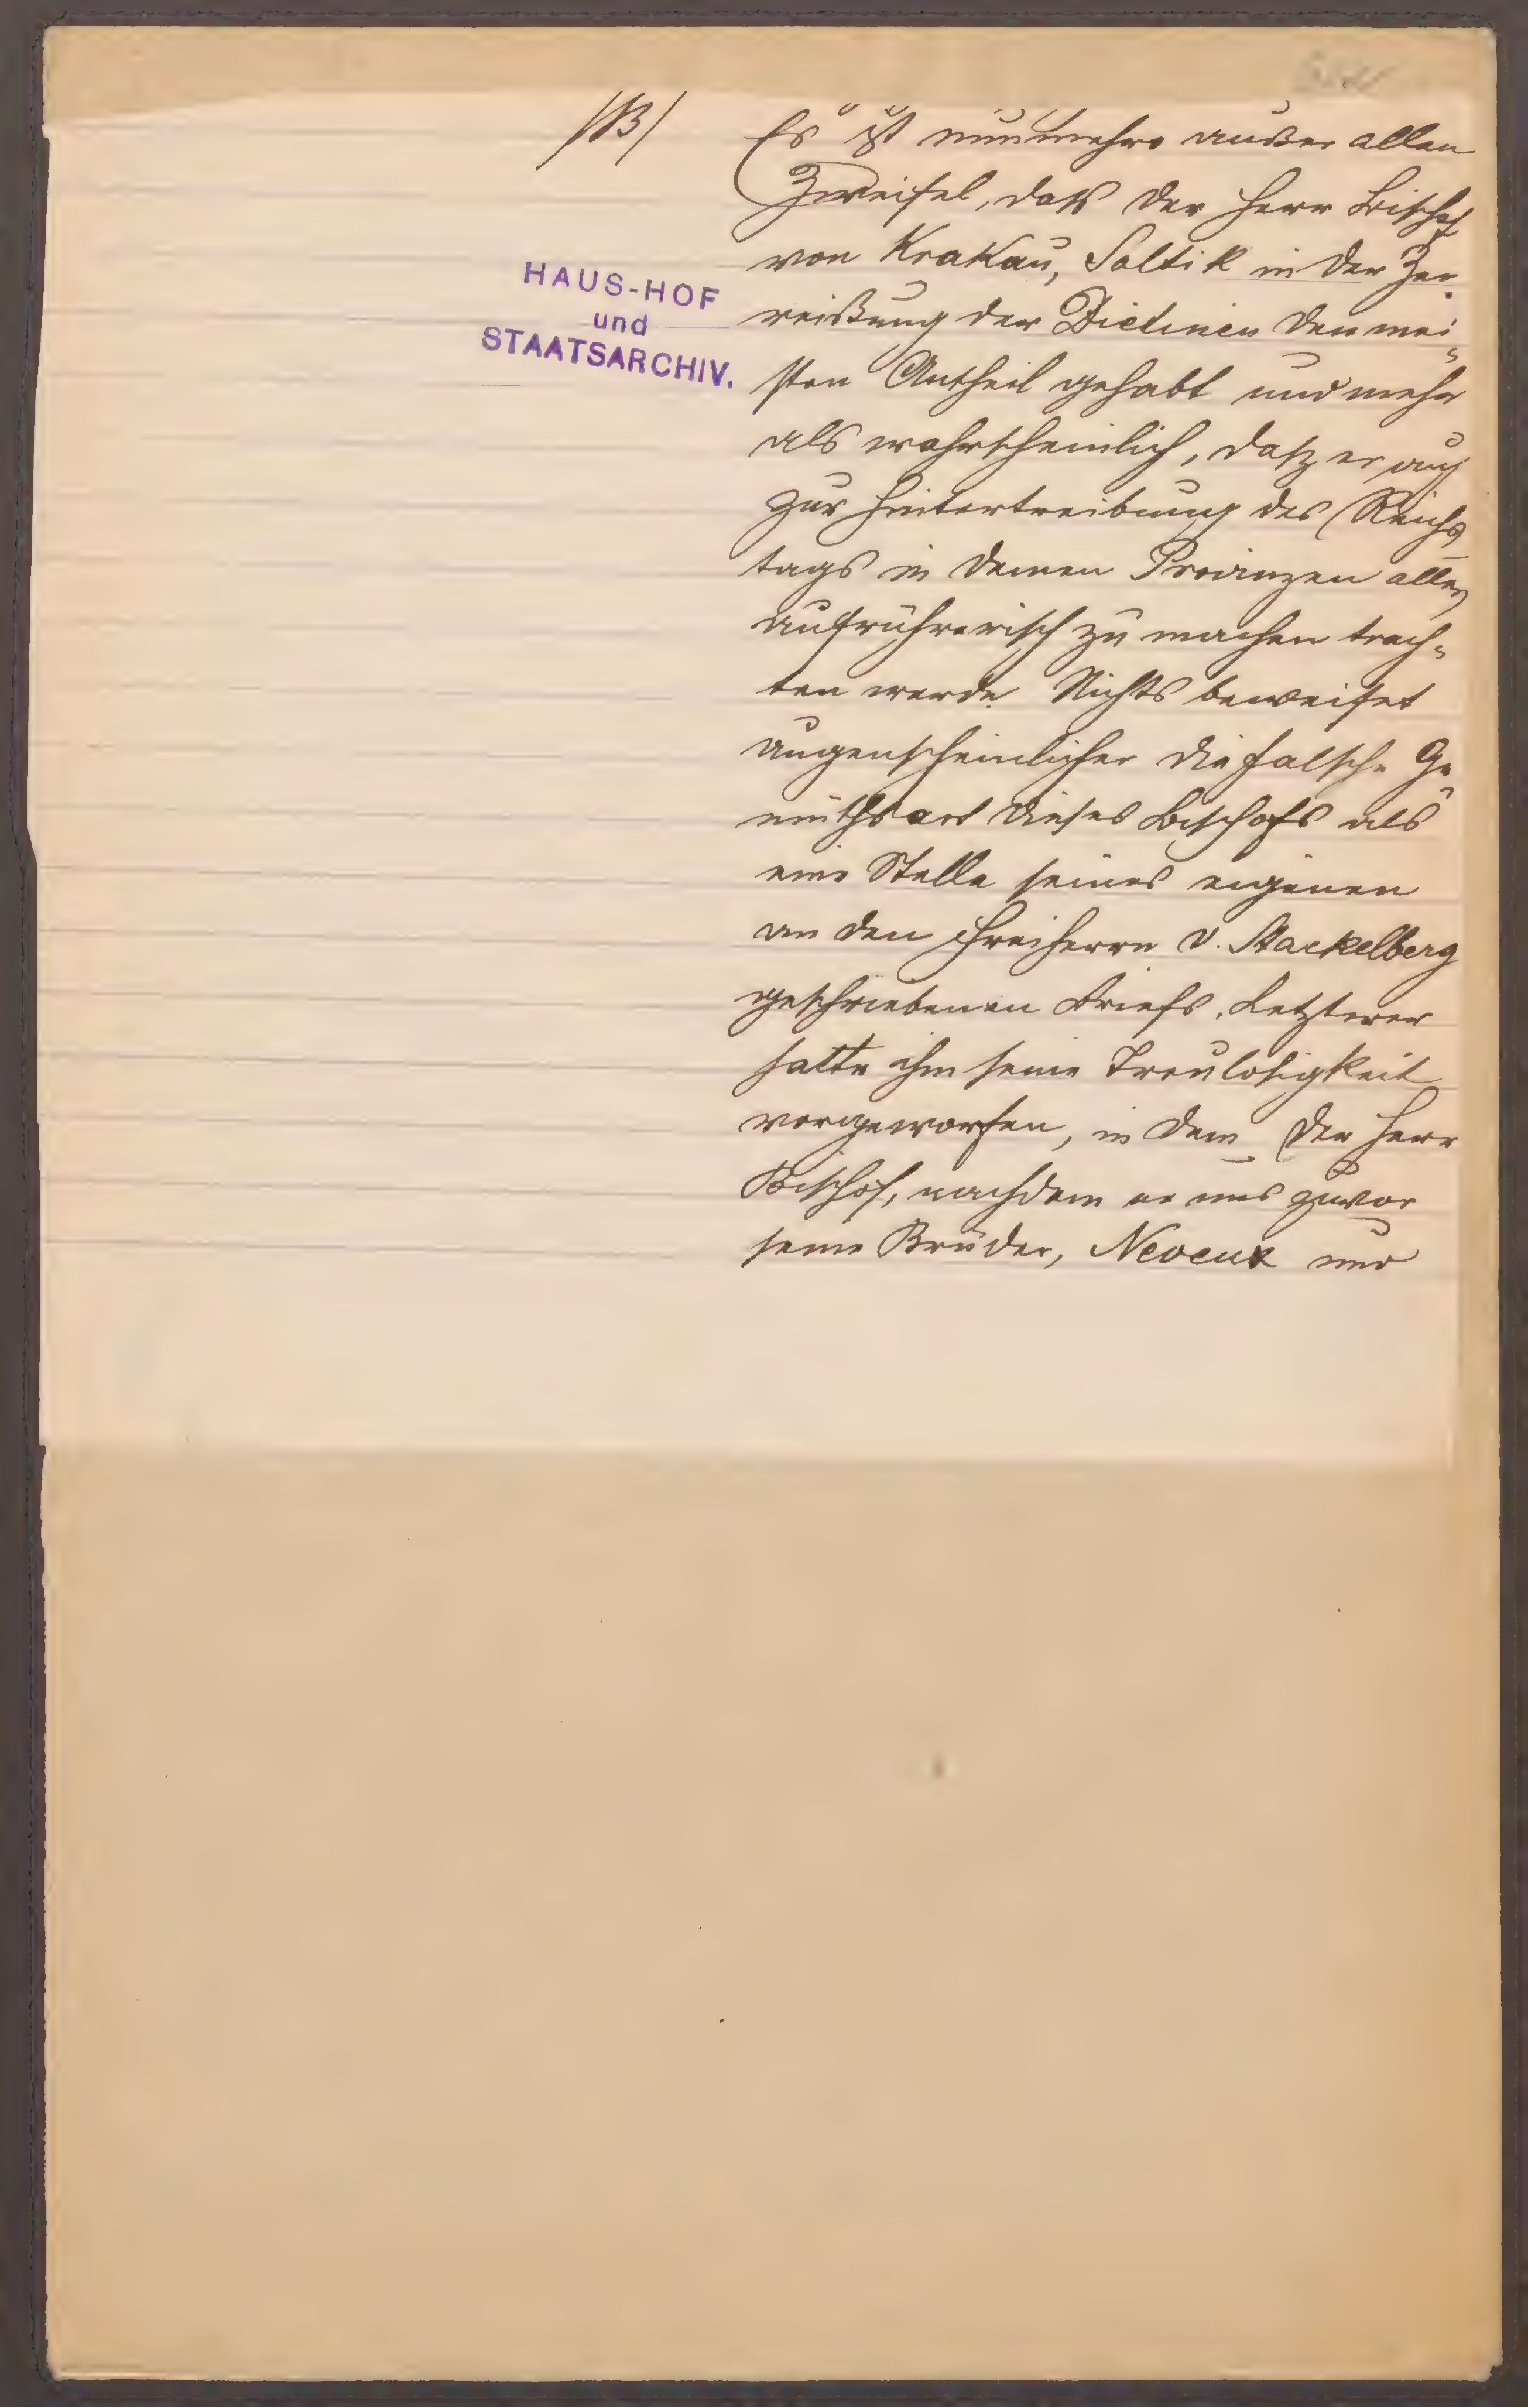 /B/
Es ist nunmehro außer allen
Zweifel, daß der Herr Bischof
von Krakau, Soltik in der Zer-
reißung der Dietinen den mei-
sten Antheil gehabt und mehr
als wahrscheinlich, daß er auch
zur Hintertreibung des Reichs
tags in denen Provinzen alles
aufrührerisch zu machen trach-
ten werde. Nichts beweiset
augenscheinlicher die falsche Ge-
müthsart dieses Bischofs als
eine Stelle seines eigenen
an den Freiherrn v. Stackelberg
geschriebenen Briefs. Letzterer
hatte ihm seine Treulosigkeit
vorgeworfen, in dem der Herr
Bischof, nachdem er uns zuvor
seine Brüder, Neveux und
HAUS-HOF
und
STAATSARCHIV.